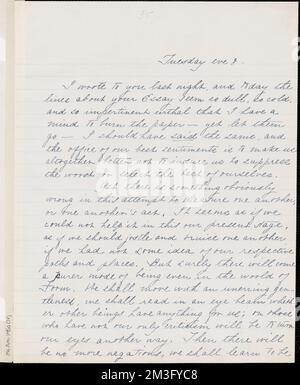 Tuesday eve &.
I wrote to you last night, and today the
lines about your Essay seem so dull, so cold,
and so impertinent withal that I have a
mind to burn the paper — yet let them
go — I should have said the same, and
the office of our best sentiments is to make us
altogether better not to us to suppress
the worst of ourselves.
And there is something obviously
wrong in this attempt to measure one another,
or one another's act. It seems as if we
could not help it in this our present stage,
as if we should jostle and bruise one another
if we had not some idea of our respective
paths and places. But surely there will come
a purer mode of being even in the world of
Form. We shall move with an unerring gen-
tleness, we shall read in an eye beam wheth-
er other beings have anything for us; on those
who have not our only criticism will be to turn
our eyes another way. Then there will
be no more negations, we shall learn to be
alamy
alamy
Image ID: 2M3FYC8
www.alamy.com